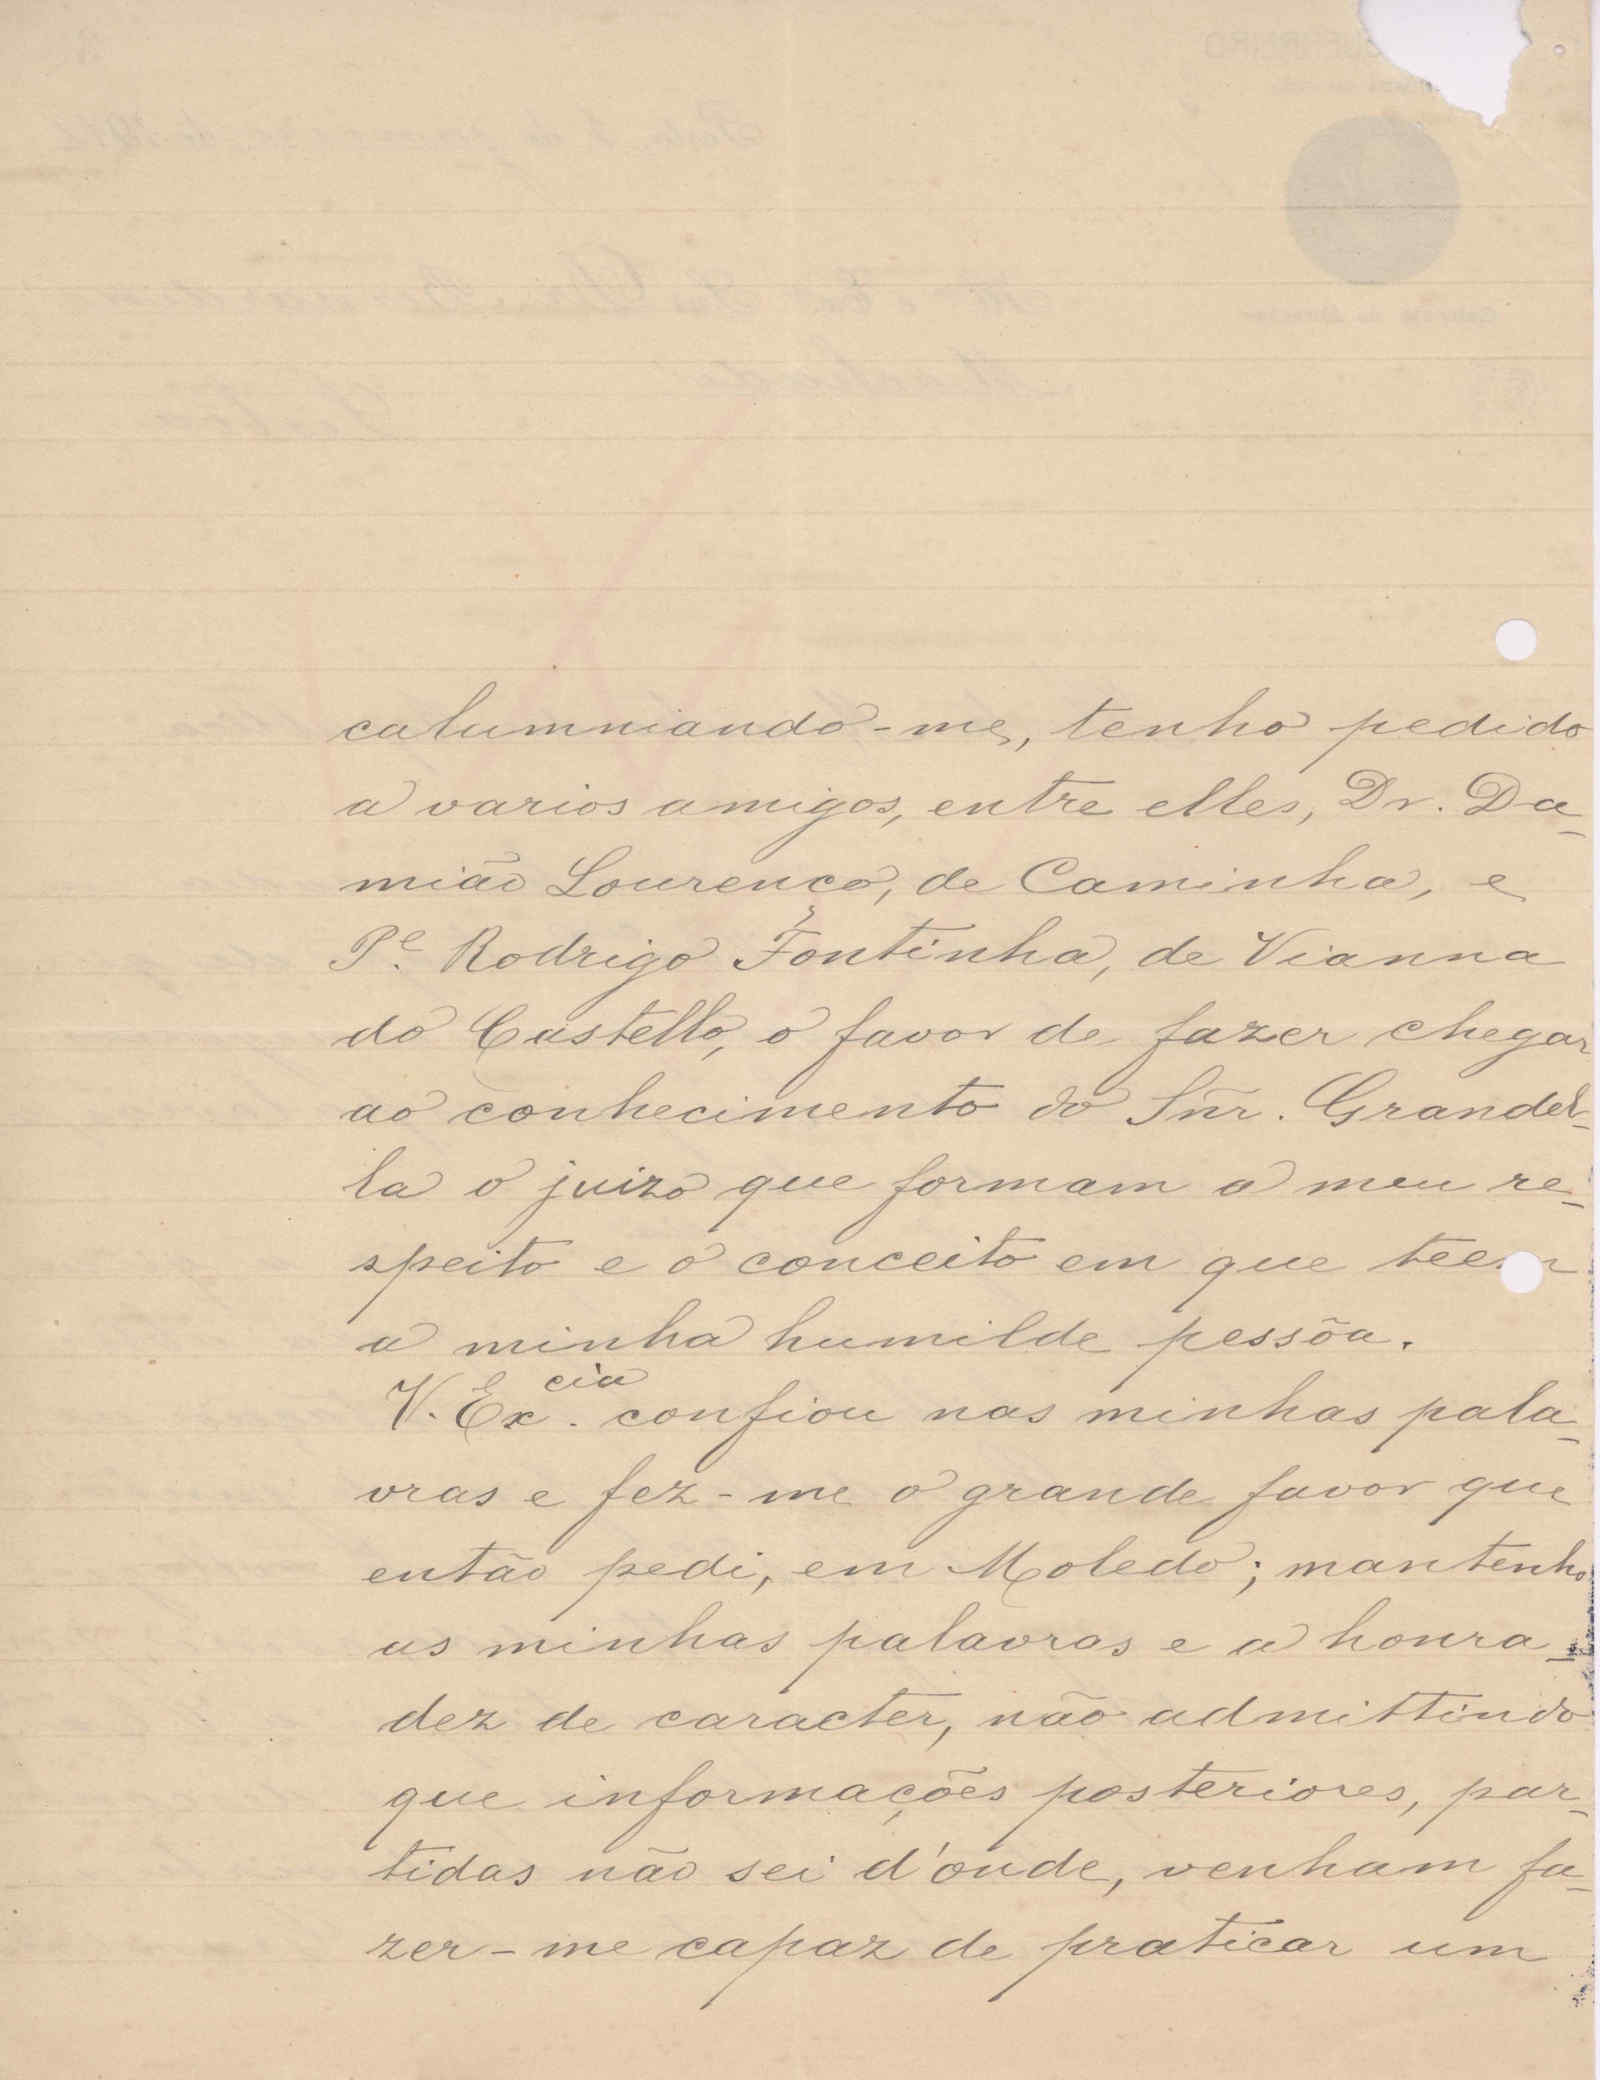 calumniando-me, tenho pedido
a varios amigos, entre elles, Dr. Da-
mião Lourenço, de Caminha, e
P.e Rodrigo Fontinha, de Vianna
do Castello, o favor de fazer chegar
ao conhecimento do Sñr. Grandel-
la o juizo que formam a meu re-
speito e o conceito em que teem
a minha humilde pessõa.
V. Ex.cia confiou nas minhas pala-
vras e fez-me o grande favor que
então pedi, em Moledo; mantenho
as minhas palavras e a honra-
dez de caracter, não admittindo
que informações posteriores, par-
tidas não sei d'onde, venham fa-
zer-me capaz de praticar um